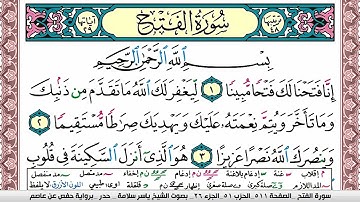 سُورَةُ الْفَتْحِ
بِسْمِ اللَّهِ الرَّحْمَٰنِ الرَّحِيمِ
إِنَّا فَتَحْنَا لَكَ فَتْحًا مُّبِينًا ١ لِّيَغْفِرَ لَكَ اللَّهُ مَا تَقَدَّمَ مِن ذَنۢبِكَ
وَمَا تَأَخَّرَ وَيُتِمَّ نِعْمَتَهُۥ عَلَيْكَ وَيَهْدِيَكَ صِرَٰطًا مُّسْتَقِيمًا ٢
وَيَنصُرَكَ اللَّهُ نَصْرًا عَزِيزًا ٣ هُوَ الَّذِىٓ أَنزَلَ السَّكِينَةَ فِى قُلُوبِ
سورة الفتح . الصفحة ٥١١ . الحزب ٥١ . الجزء ٢٦ . بصوت الشيخ ياسر سلامة . حدر . برواية حفص عن عاصم